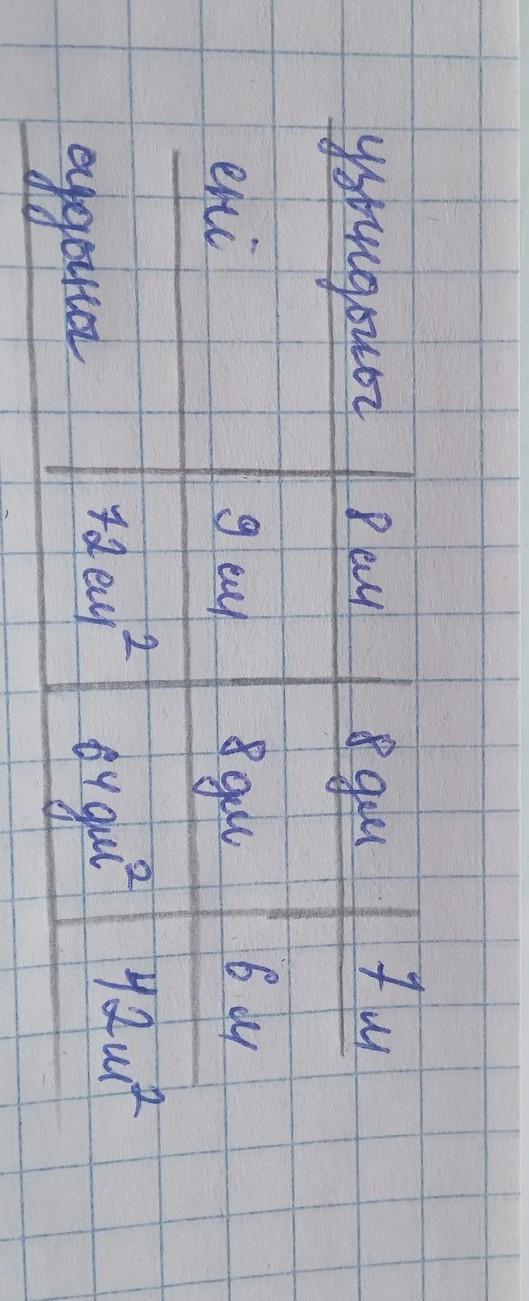 ұзындығы 8 см 8 дм 7 м
ені 9 см 8 дм 6 м
ауданы 72 см² 64 дм² 42 м²